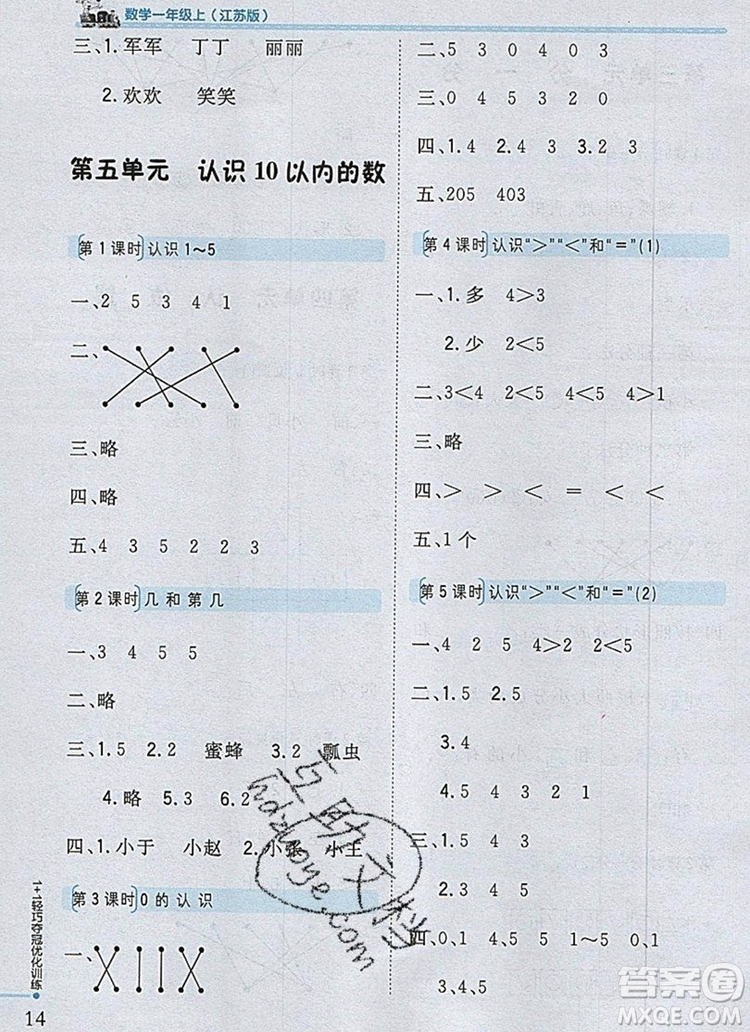 数学一年级上(江苏版)
三、1.军军 丁丁 丽丽
2.欢欢 笑笑
第五单元 认识10以内的数
第1课时 认识1~5
一、2 5 3 4 1
二、
三、略
四、略
五、4 3 5 2 2 3
第2课时 几和第几
一、3 4 5 5
二、略
三、1.5 2.2 蜜蜂 3.2 瓢虫
4.略 5.3 6.2
四、1.小于 小赵 2.小张 小王
第3课时 0的认识
一、
1+1轻巧夺冠优化训练
14
二、5 3 0 4 0 3
三、0 4 5 3 2 0
四、1.4 2.4 3 3.2 3
五、205 403
第4课时 认识“>”“<”和“=”(1)
一、1.多 4>3
2.少 2<5
二、3<4 2<4 4<5 4>1
三、略
四、> > < = < <
五、1个
第5课时 认识“>”“<”和“=”(2)
一、4 2 5 4>2 4<5
二、1.5 2.5
3.4
4.5 4 3 2 1
三、1.5 4 2 3
2.3 4 5
四、0,1 4,5 5 0 0,1
3,4,5
互助文档
hdzuoye.com
答案圈
MXQE.COM